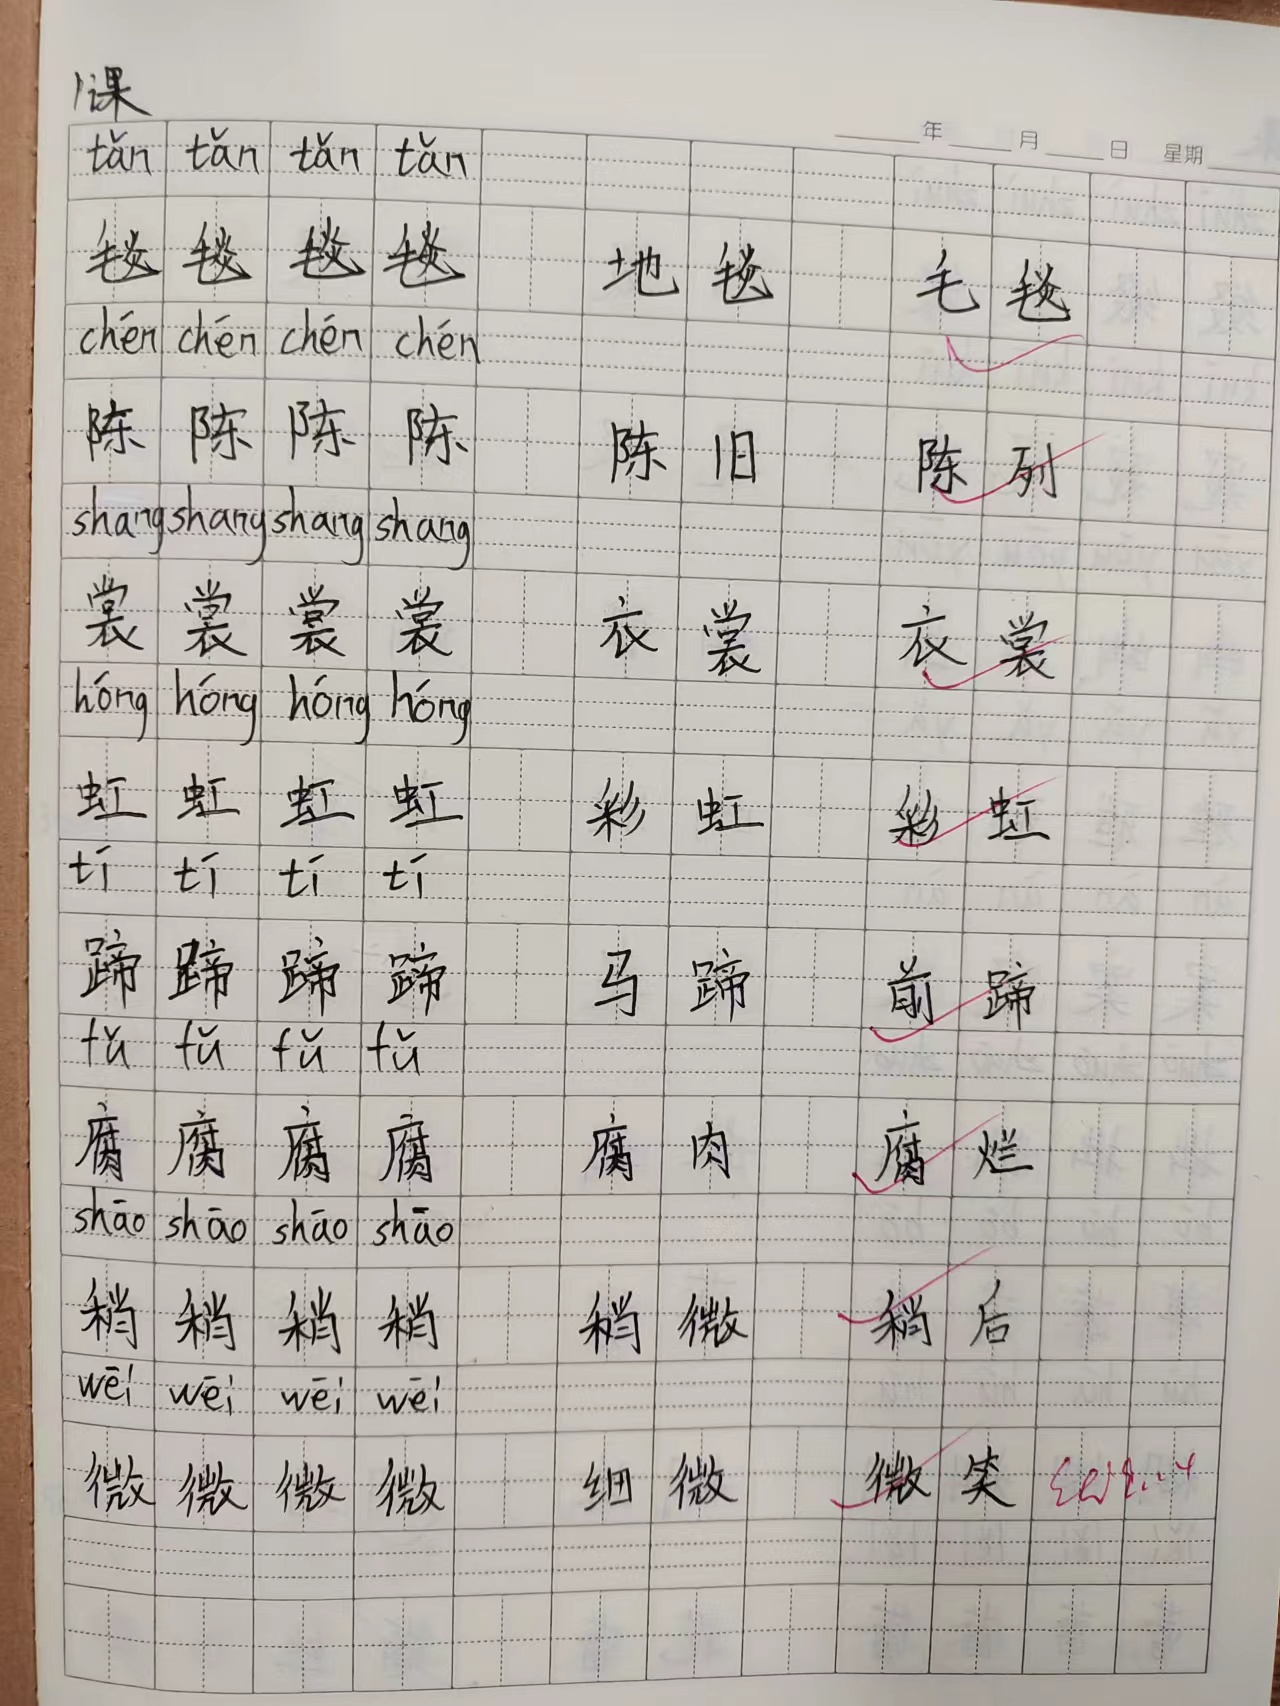 1课
年 月 日 星期
tǎn tǎn tǎn tǎn
毯 毯 毯 毯 地毯 毛毯
chén chén chén chén
陈 陈 陈 陈 陈旧 陈列
shang shang shang shang
裳 裳 裳 裳 衣裳 衣裳
hóng hóng hóng hóng
虹 虹 虹 虹 彩虹 彩虹
tí tí tí tí
蹄 蹄 蹄 蹄 马蹄 前蹄
fǔ fǔ fǔ fǔ
腐 腐 腐 腐 腐肉 腐烂
shāo shāo shāo shāo
稍 稍 稍 稍 稍微 稍后
wēi wēi wēi wēi
微 微 微 微 细微 微笑